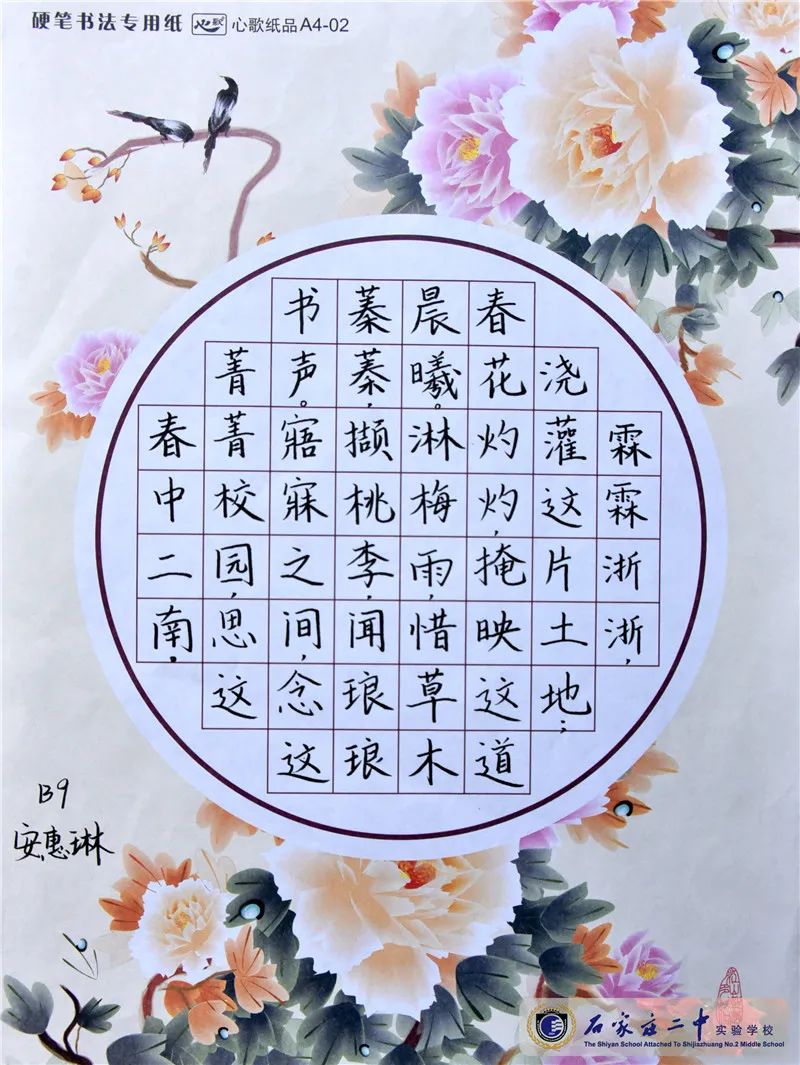 硬笔书法专用纸 心歌 心歌纸品A4-02
霖霖浙浙，
浇灌这片土地；
春花灼灼，掩映这道
晨曦。淋梅雨，惜草木
蓁蓁，撷桃李，闻琅琅
书声。寤寐之间，念这
菁菁校园，思这
春中二南.
B9
安惠琳
石家庄二中实验学校
The Shiyan School Attached To Shijiazhuang No.2 Middle School